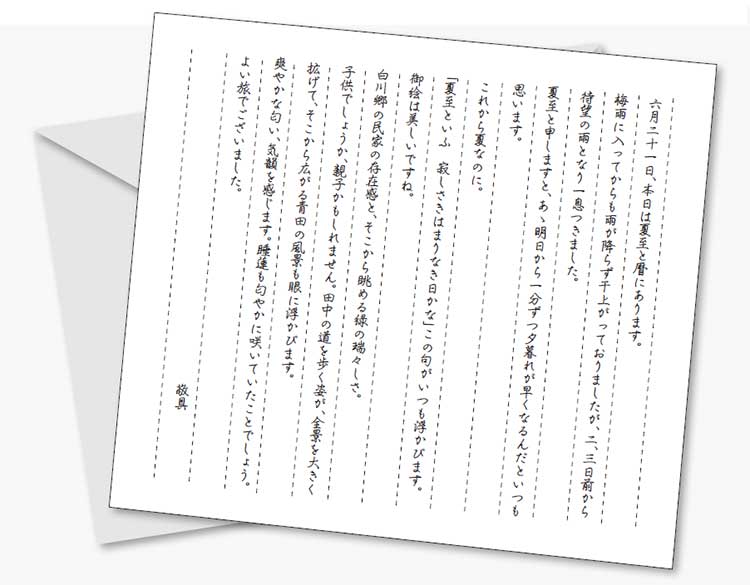 六月二十一日、本日は夏至と暦にあります。
梅雨に入ってからも雨が降らず干上がっておりましたが、二、三日前から
待望の雨となり一息つきました。
夏至と申しますと、あゝ明日から一分ずつ夕暮れが早くなるんだといつも
思います。
これから夏なのに。
「夏至といふ　寂しさきはまりなき日かな」この句がいつも浮かびます。
御絵は美しいですね。
白川郷の民家の存在感と、そこから眺める緑の瑞々しさ。
子供でしょうか、親子かもしれません。田中の道を歩く姿が、全景を大きく
拡げて、そこから広がる青田の風景も眼に浮かびます。
爽やかな匂い、気韻を感じます。睡蓮も匂やかに咲いていたことでしょう。
よい旅でございました。
敬具